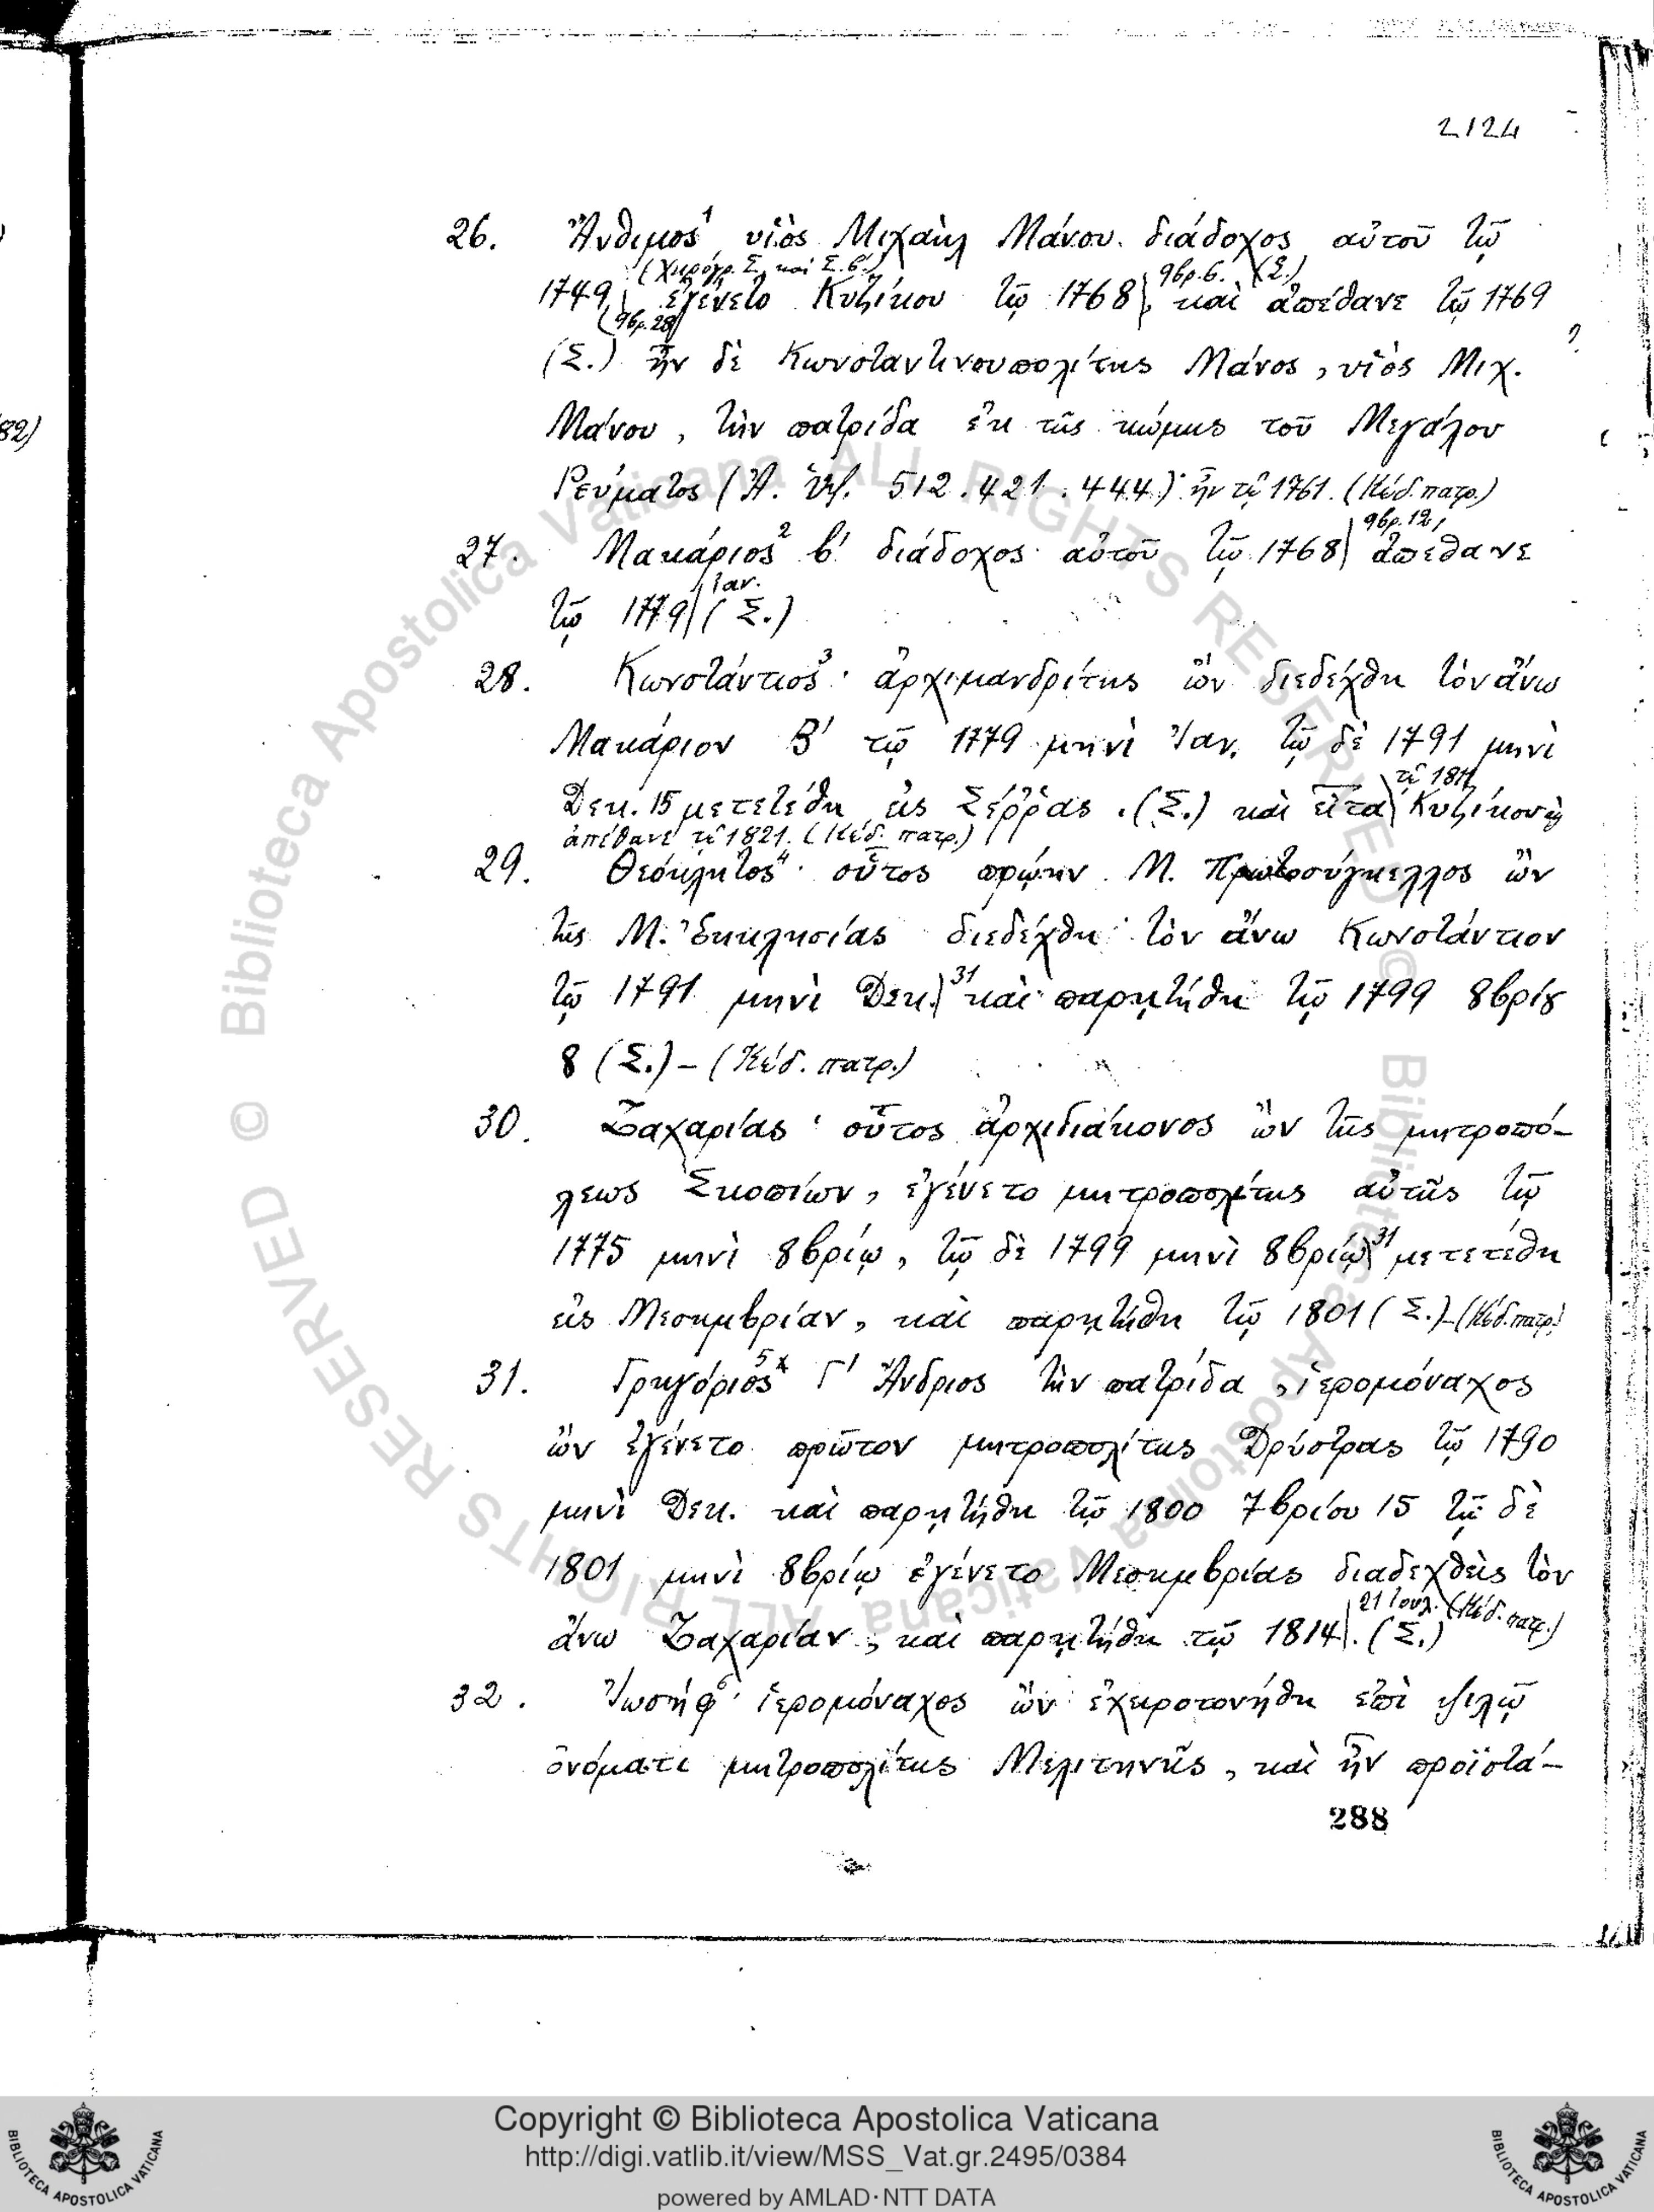 2124
26. Ἄνθιμος¹ υἱὸς Μιχαὴλ Μάνου διάδοχος αὐτοῦ τῷ
(Χειρόγρ. Σ. καὶ Σ. β.) 9βρ. 6. (Σ.)
1749 ἐγένετο Κυζίκου τῷ 1768, καὶ ἀπέθανε τῷ 1769
9βρ. 28
(Σ.) ἦν δὲ Κωνσταντινουπολίτης Μάνος, υἱὸς Μιχ.
Μάνου, τὴν πατρίδα ἐκ τῆς κώμης τοῦ Μεγάλου
Ῥεύματος (Ἀ. Ὑψ. 512. 421. 444.) ἦν τῷ 1761. (Κώδ. πατρ.)
27. Μακάριος² β' διάδοχος αὐτοῦ τῷ 1768 9βρ. 12, ἀπέθανε
τῷ 1779 Ιαν. (Σ.)
28. Κωνστάντιος³· ἀρχιμανδρίτης ὢν διεδέχθη τὸν ἄνω
Μακάριον Β' τῷ 1779 μηνὶ Ἰαν. τῷ δὲ 1791 μηνὶ
Δεκ. 15 μετετέθη εἰς Σέῤῥας. (Σ.) καὶ εἶτα τῷ 1811 Κυζίκου
ἀπέθανε τῷ 1821. (Κώδ. πατρ.)
29. Θεόκλητος⁴· οὗτος πρώην Μ. Πρωτοσύγκελλος ὢν
τῆς Μ. Ἐκκλησίας διεδέχθη τὸν ἄνω Κωνστάντιον
τῷ 1791 μηνὶ Δεκ. 31 καὶ παρῃτήθη τῷ 1799 8βρίȣ
8 (Σ.) – (Κώδ. πατρ.)
30. Ζαχαρίας· οὗτος ἀρχιδιάκονος ὢν τῆς μητροπό-
λεως Σκοπίων, ἐγένετο μητροπολίτης αὐτῆς τῷ
1775 μηνὶ 8βρίῳ, τῷ δὲ 1799 μηνὶ 8βρίῳ 31 μετετέθη
εἰς Μεσημβρίαν, καὶ παρῃτήθη τῷ 1801 (Σ.) – (Κώδ. πατρ.)
31. Γρηγόριος⁵* Γ' Ἄνδριος τὴν πατρίδα, ἱερομόναχος
ὢν ἐγένετο πρῶτον μητροπολίτης Δρύστρας τῷ 1790
μηνὶ Δεκ. καὶ παρῃτήθη τῷ 1800 7βρίου 15 τῷ δὲ
1801 μηνὶ 8βρίῳ ἐγένετο Μεσημβρίας διαδεχθεὶς τὸν
ἄνω Ζαχαρίαν, καὶ παρῃτήθη τῷ 1814 21 Ιουλ. (Σ.) (Κώδ. πατρ.)
32. Ἰωσήφ⁶· ἱερομόναχος ὢν ἐχειροτονήθη ἐπὶ ψιλῷ
ὀνόματι μητροπολίτης Μελιτηνῆς, καὶ ἦν προϊστά-
288
82)
© Biblioteca Apostolica Vaticana ALL RIGHTS RESERVED © Biblioteca Apostolica Vaticana ALL RIGHTS RESERVED
Copyright © Biblioteca Apostolica Vaticana
http://digi.vatlib.it/view/MSS_Vat.gr.2495/0384
powered by AMLAD·NTT DATA
BIBLIOTECA APOSTOLICA VATICANA
BIBLIOTECA APOSTOLICA VATICANA